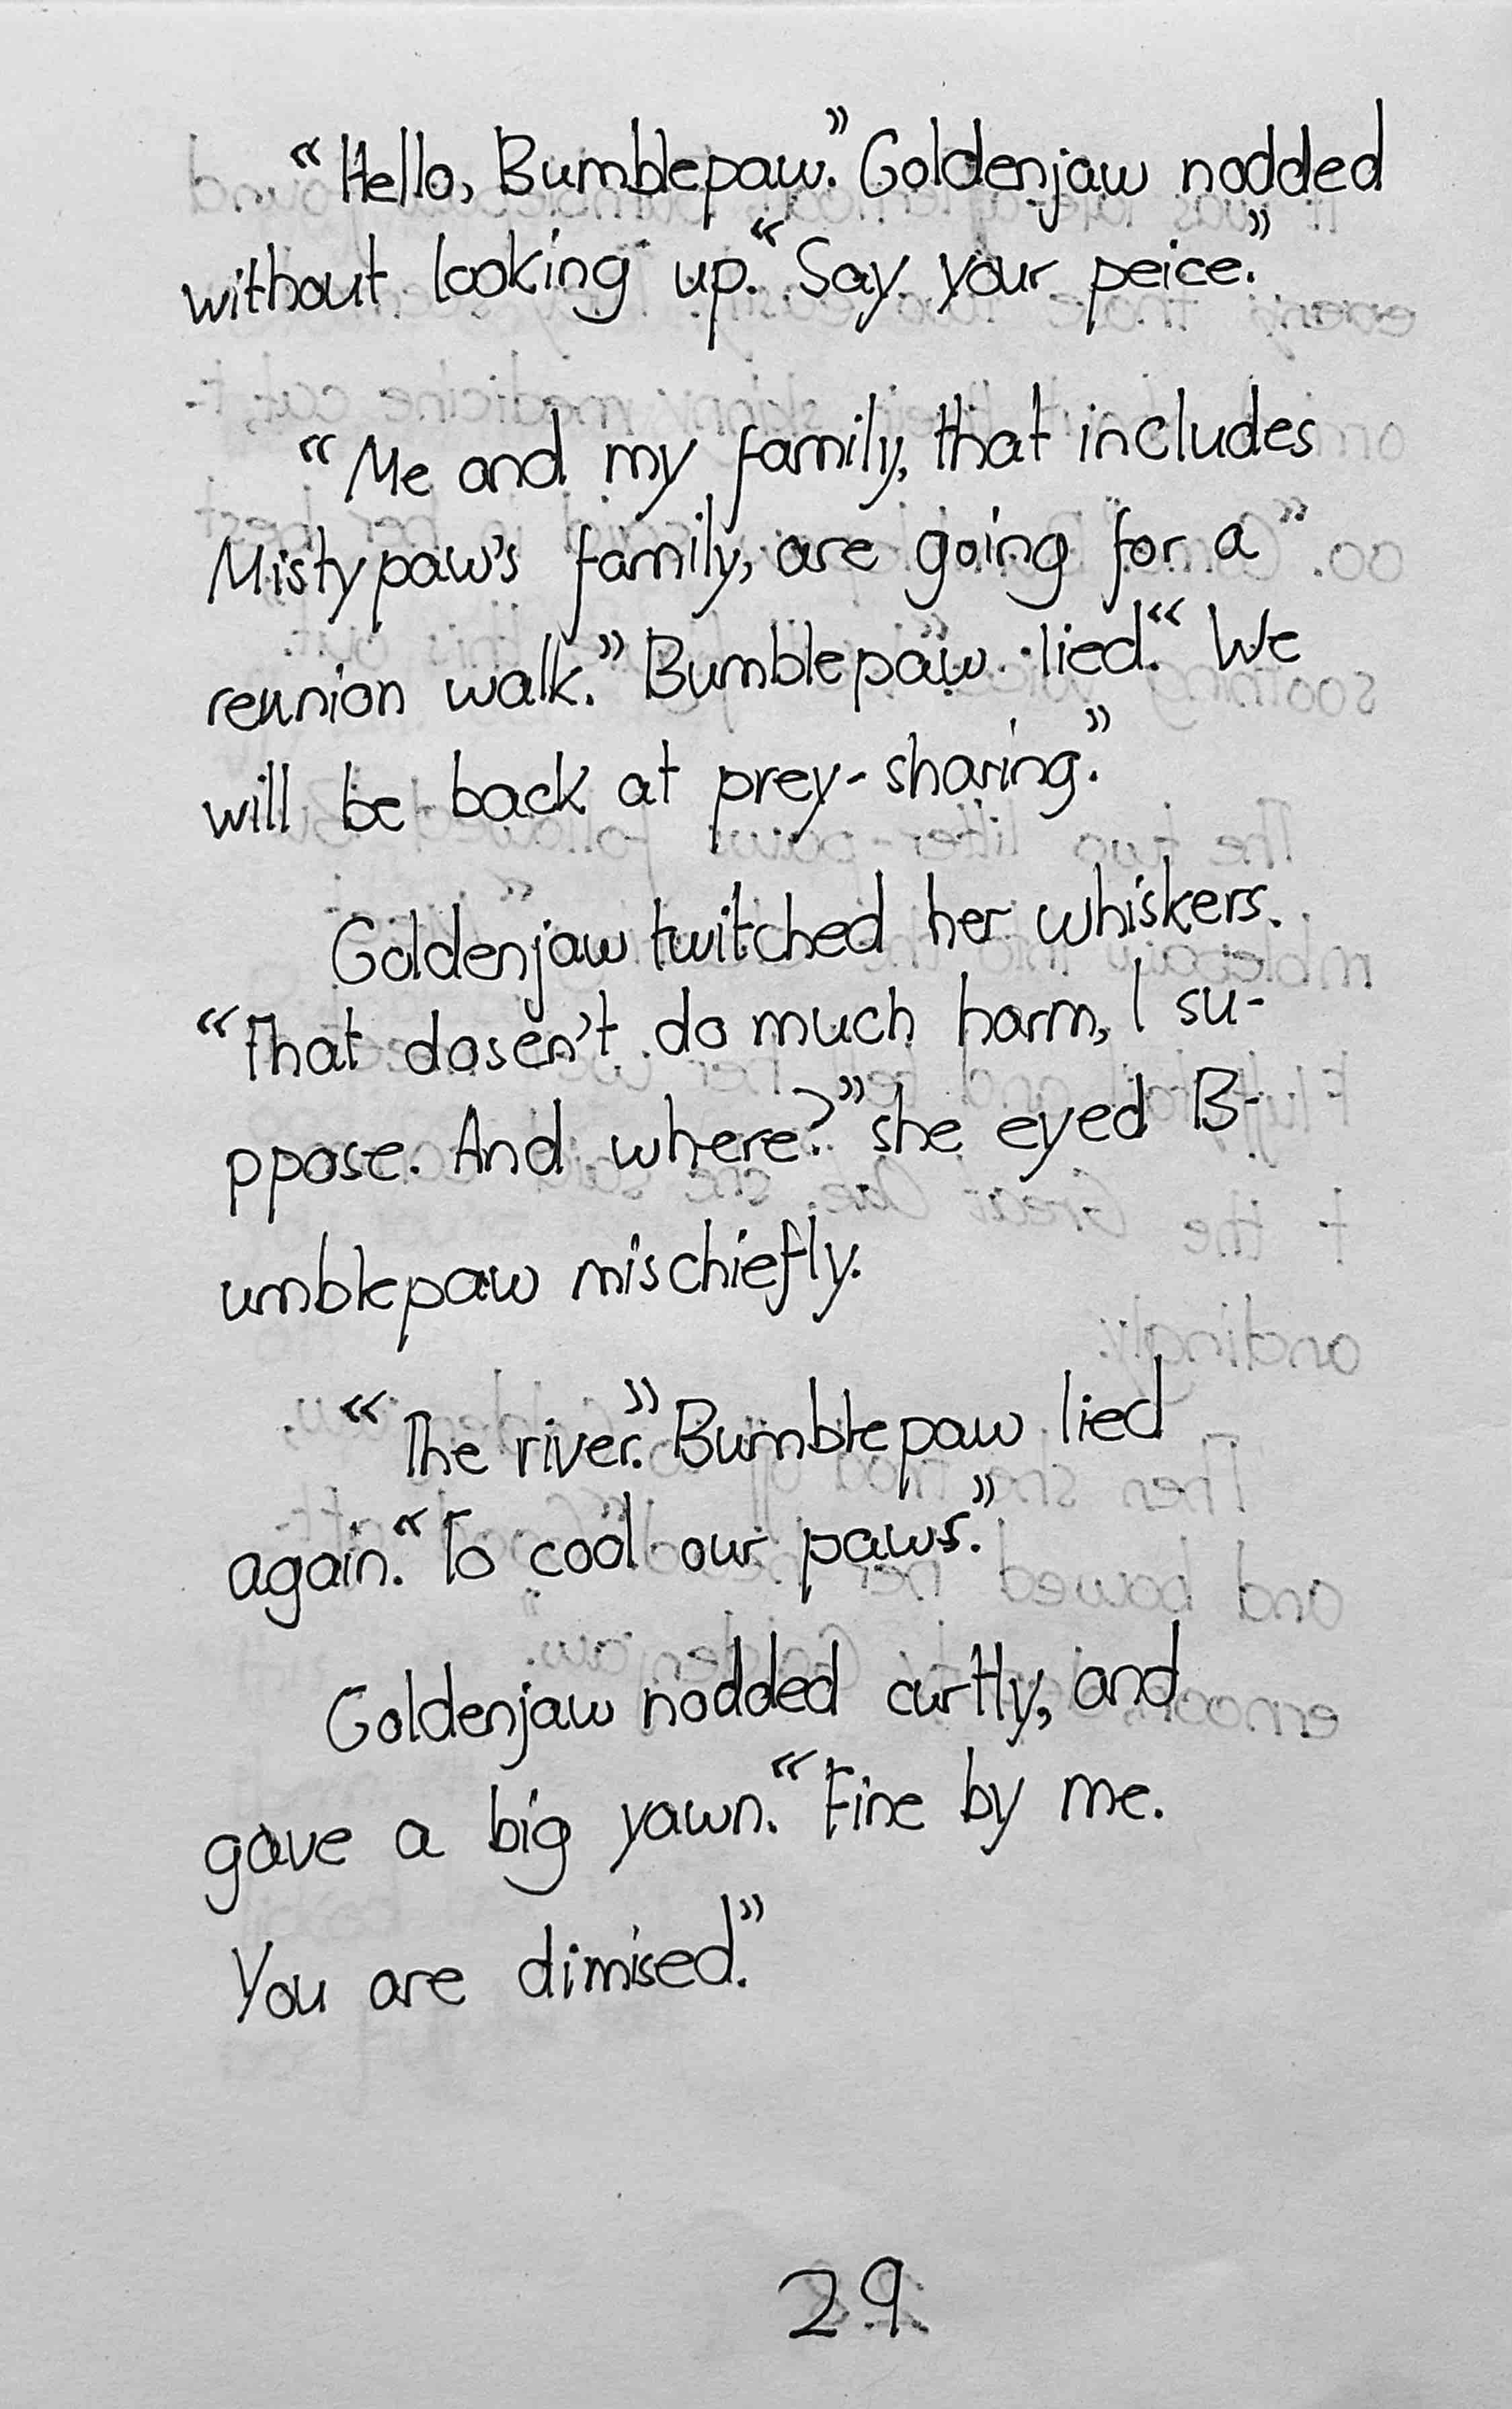 “Hello, Bumblepaw.” Goldenjaw nodded
without looking up. “Say your peice.”
“Me and my family, that includes
Mistypaw's family, are going for a
reunion walk.” Bumblepaw lied. “We
will be back at prey-sharing.”
Goldenjaw twitched her whiskers.
“That dosen't do much harm, I su-
ppose. And where?” she eyed B-
umblepaw mischiefly.
“The river.” Bumblepaw lied
again. “To cool our paws.”
Goldenjaw nodded curtly, and
gave a big yawn. “Fine by me.
You are dimised.”
29